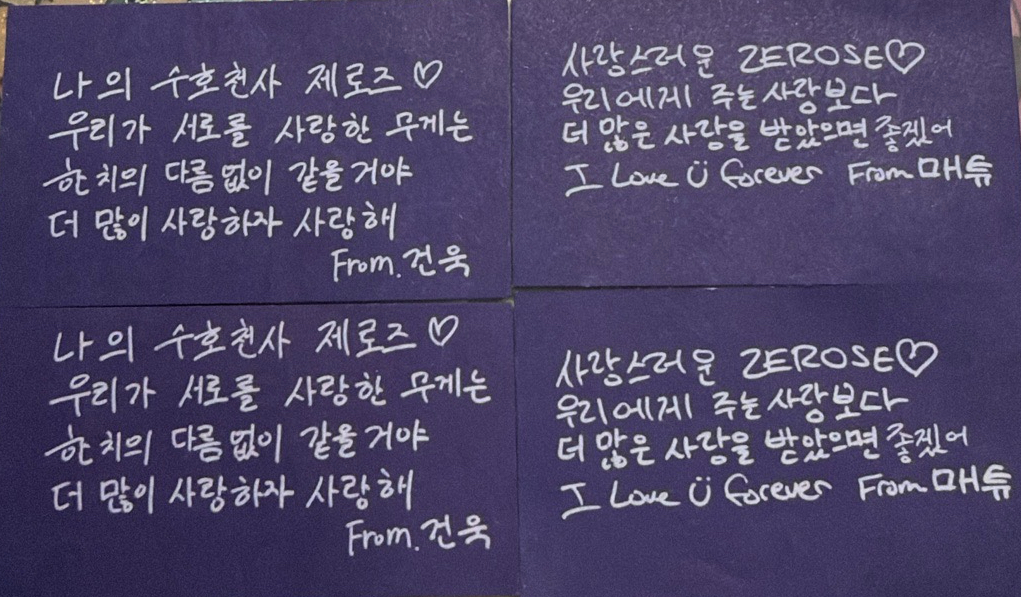 나의 수호천사 제로즈♡
우리가 서로를 사랑한 무게는
한 치의 다름없이 같을거야
더 많이 사랑하자 사랑해
From. 건욱
사랑스러운 ZEROSE♡
우리에게 주는 사랑보다
더 많은 사랑을 받았으면 좋겠어
I Love Ü forever From 매튜
나의 수호천사 제로즈♡
우리가 서로를 사랑한 무게는
한 치의 다름없이 같을거야
더 많이 사랑하자 사랑해
From. 건욱
사랑스러운 ZEROSE♡
우리에게 주는 사랑보다
더 많은 사랑을 받았으면 좋겠어
I Love Ü forever From 매튜